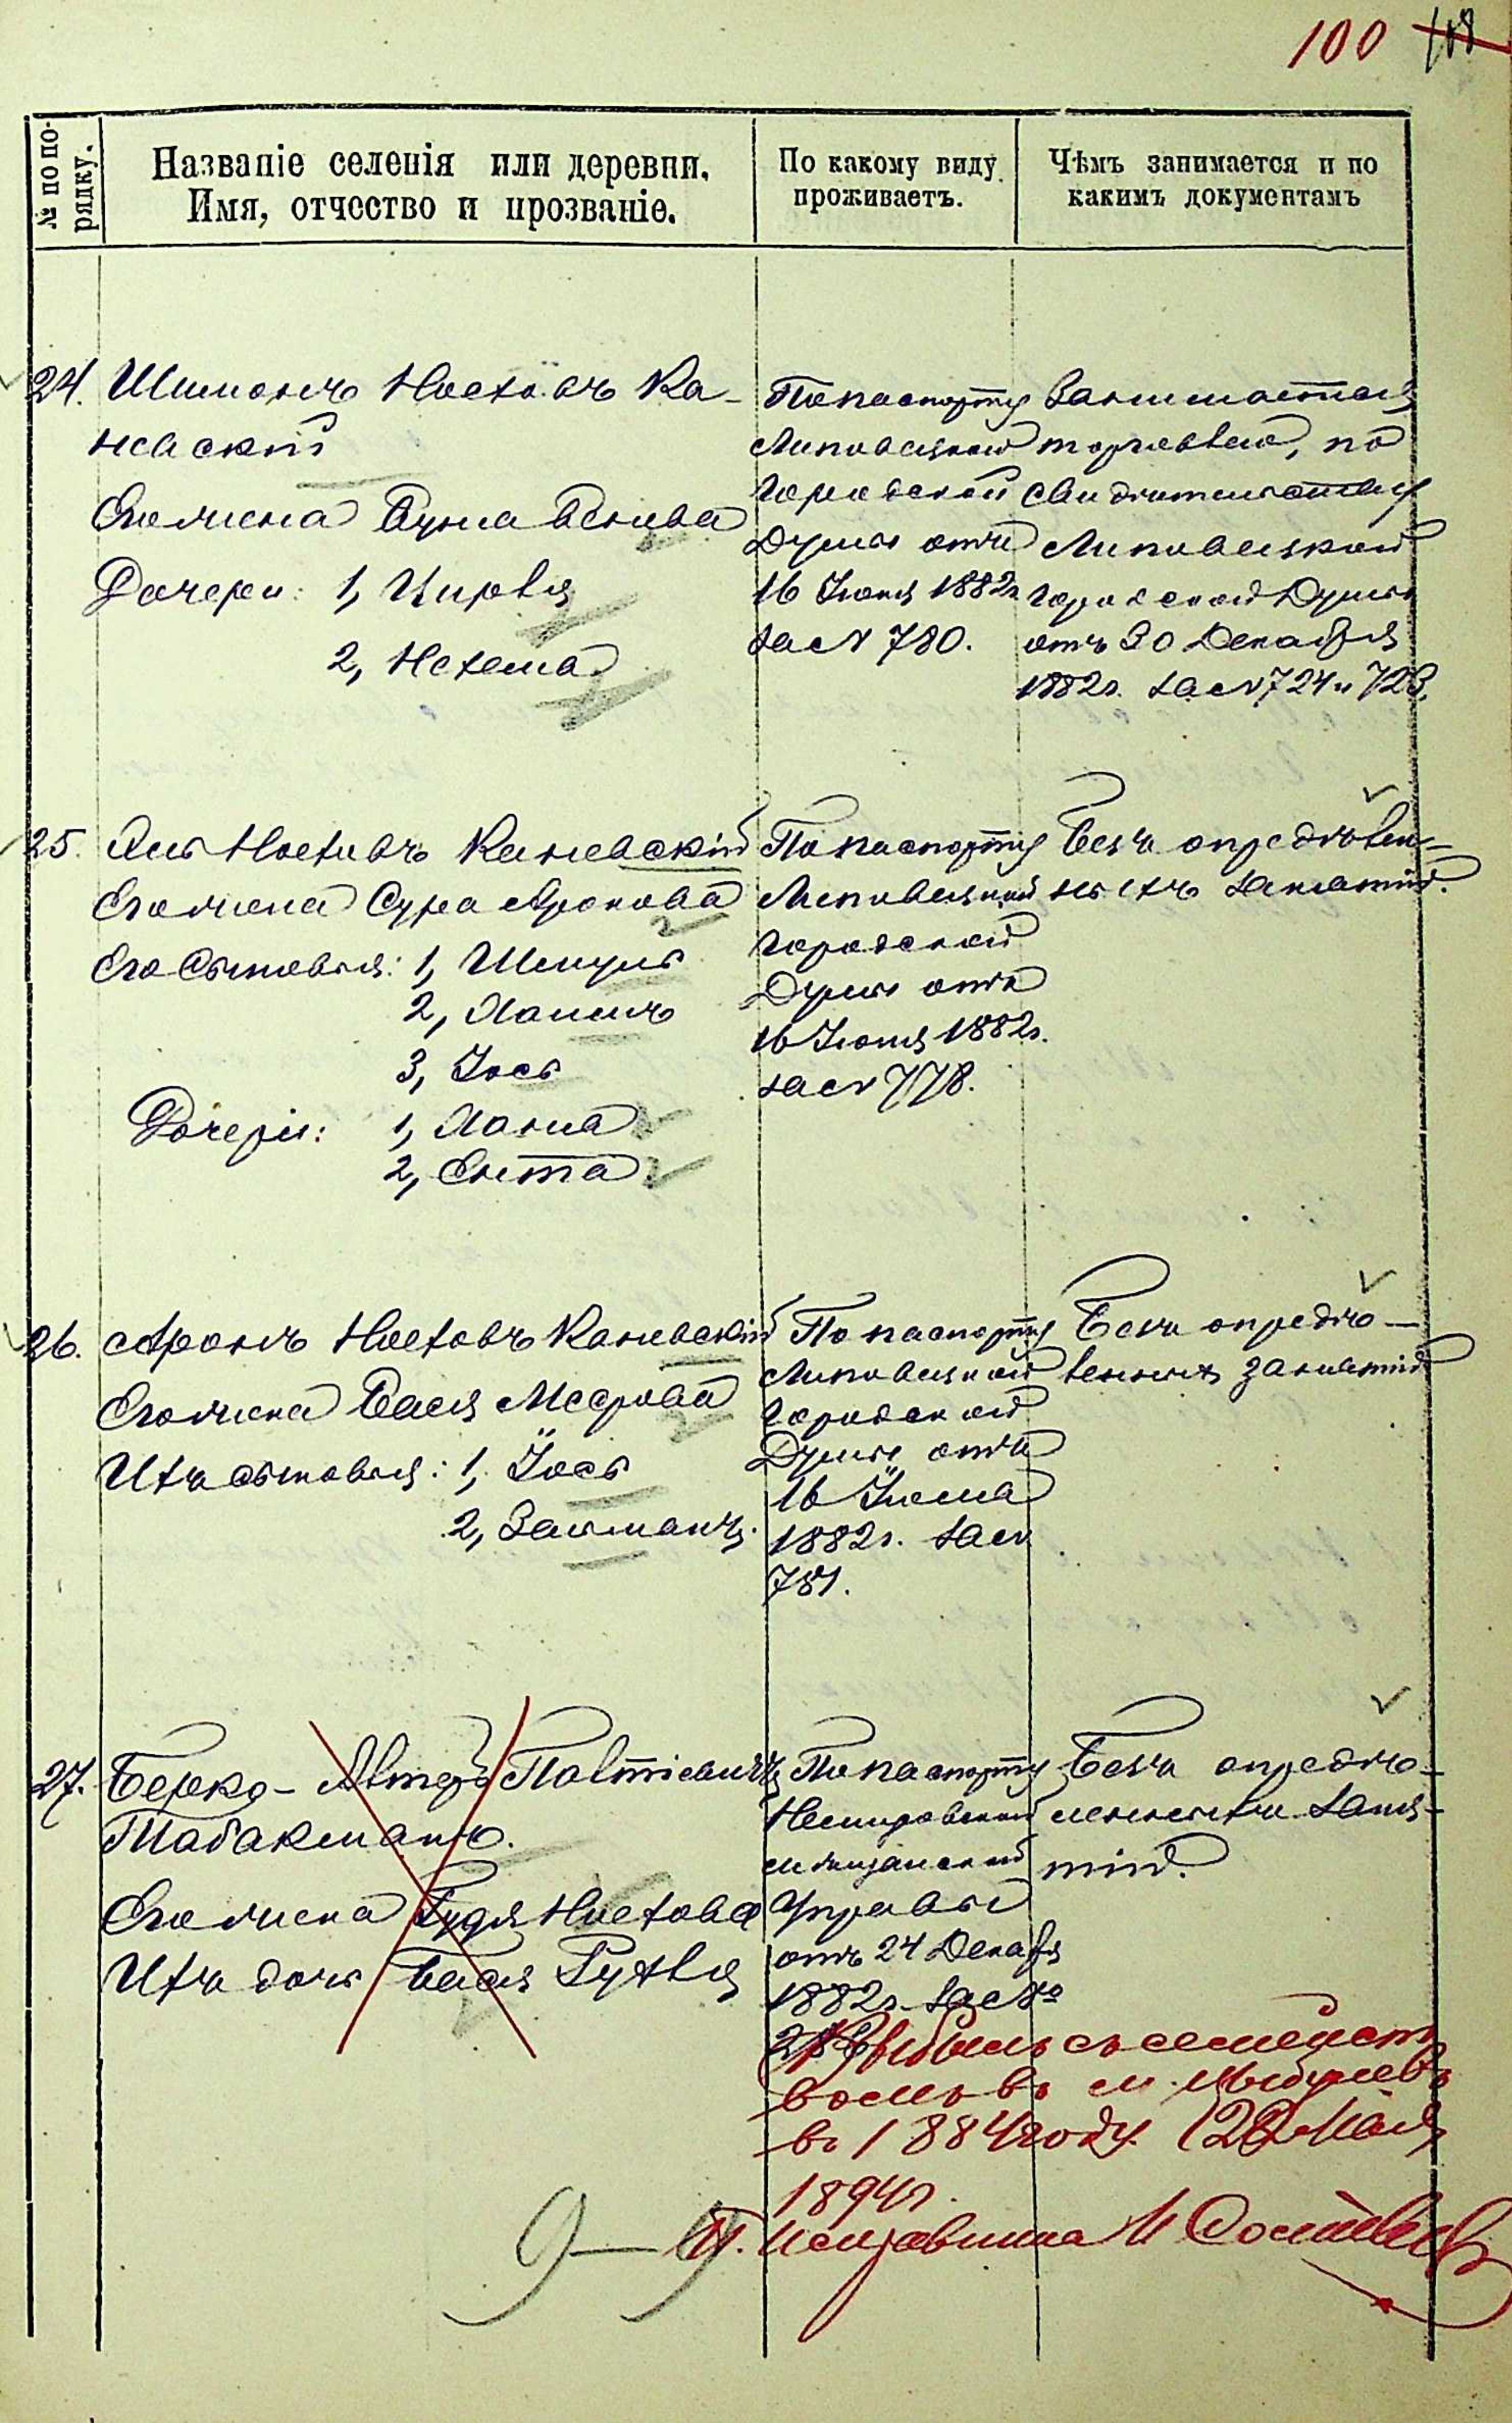 100 108
№ по по-
рядку.
Названіе селенія или деревни.
Имя, отчество и прозваніе.
По какому виду
проживаетъ.
Чѣмъ занимается и по
какимъ документамъ
24. Шимонъ Ноеховъ Ка-
невскій
Его жена Бруха
Дочери: 1, Цирля
2, Нехема
По паспорту
Липовецкой
Городской
Думы отъ
16 Іюня 1882г
за № 780.
Занимается
торговлею, по
свидѣтельству
Липовецкой
Городской Думы
отъ 30 Декабря
1882г. за № 724 и 723.
25. Ноеховъ Каневскій
Его жена Сура Аронова
Его сыновья: 1, Шмуль
2, Хаимъ
3, Іось
Дочери: 1, Ханна
2, Ента
По паспорту
Липовецкой
Городской
Думы отъ
16 Іюня 1882г.
за № 778.
Безъ опредѣлен-
ныхъ занятій.
26. Аронъ Ноеховъ Каневскій
Его жена Бася Меерова
Ихъ сыновья: 1, Іось
2, Залманъ.
По паспорту
Липовецкой
Городской
Думы отъ
16 Іюня
1882г. за №
781.
Безъ опредѣ-
ленныхъ занятій
27. Берко-Алтеръ Палтіевичъ
Табакманъ.
Его жена Гудя Ноехова
Ихъ дочь Бася Рухля
По паспорту
Немировской
мѣщанской
Управы
отъ 24 Декабря
1882г. за №
Безъ опредѣ-
ленныхъ заня-
тій.
Выбылъ съ семейст
вомъ въ м. Цыбулевъ
въ 1884 году. 28 Мая
1894г.
П. Исправника И
9 — 9